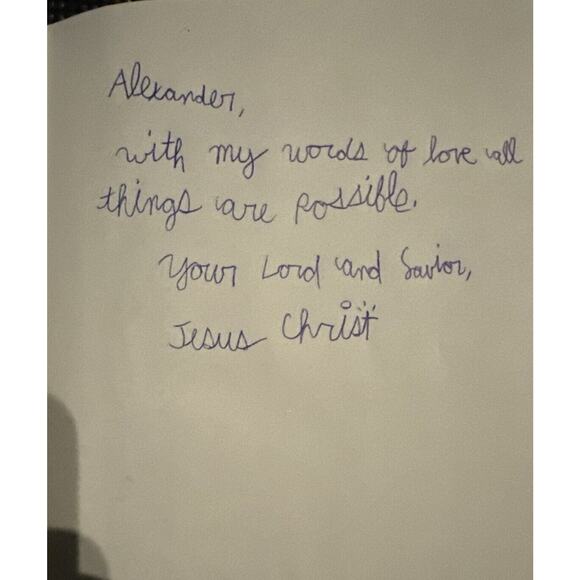 Alexander,
with my words of love all
things are possible.
Your Lord and Savior,
Jesus Christ